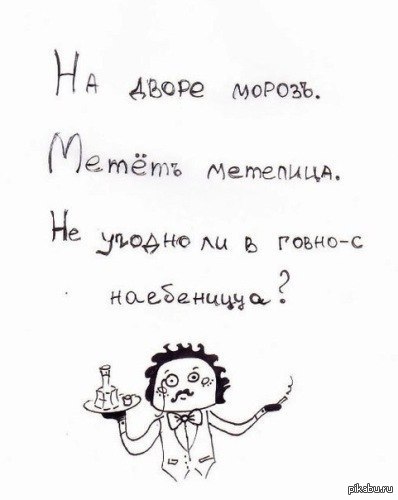 На дворе морозъ.
Метётъ метелица.
Не угодно ли в говно-с
наебениццa?
pikabu.ru